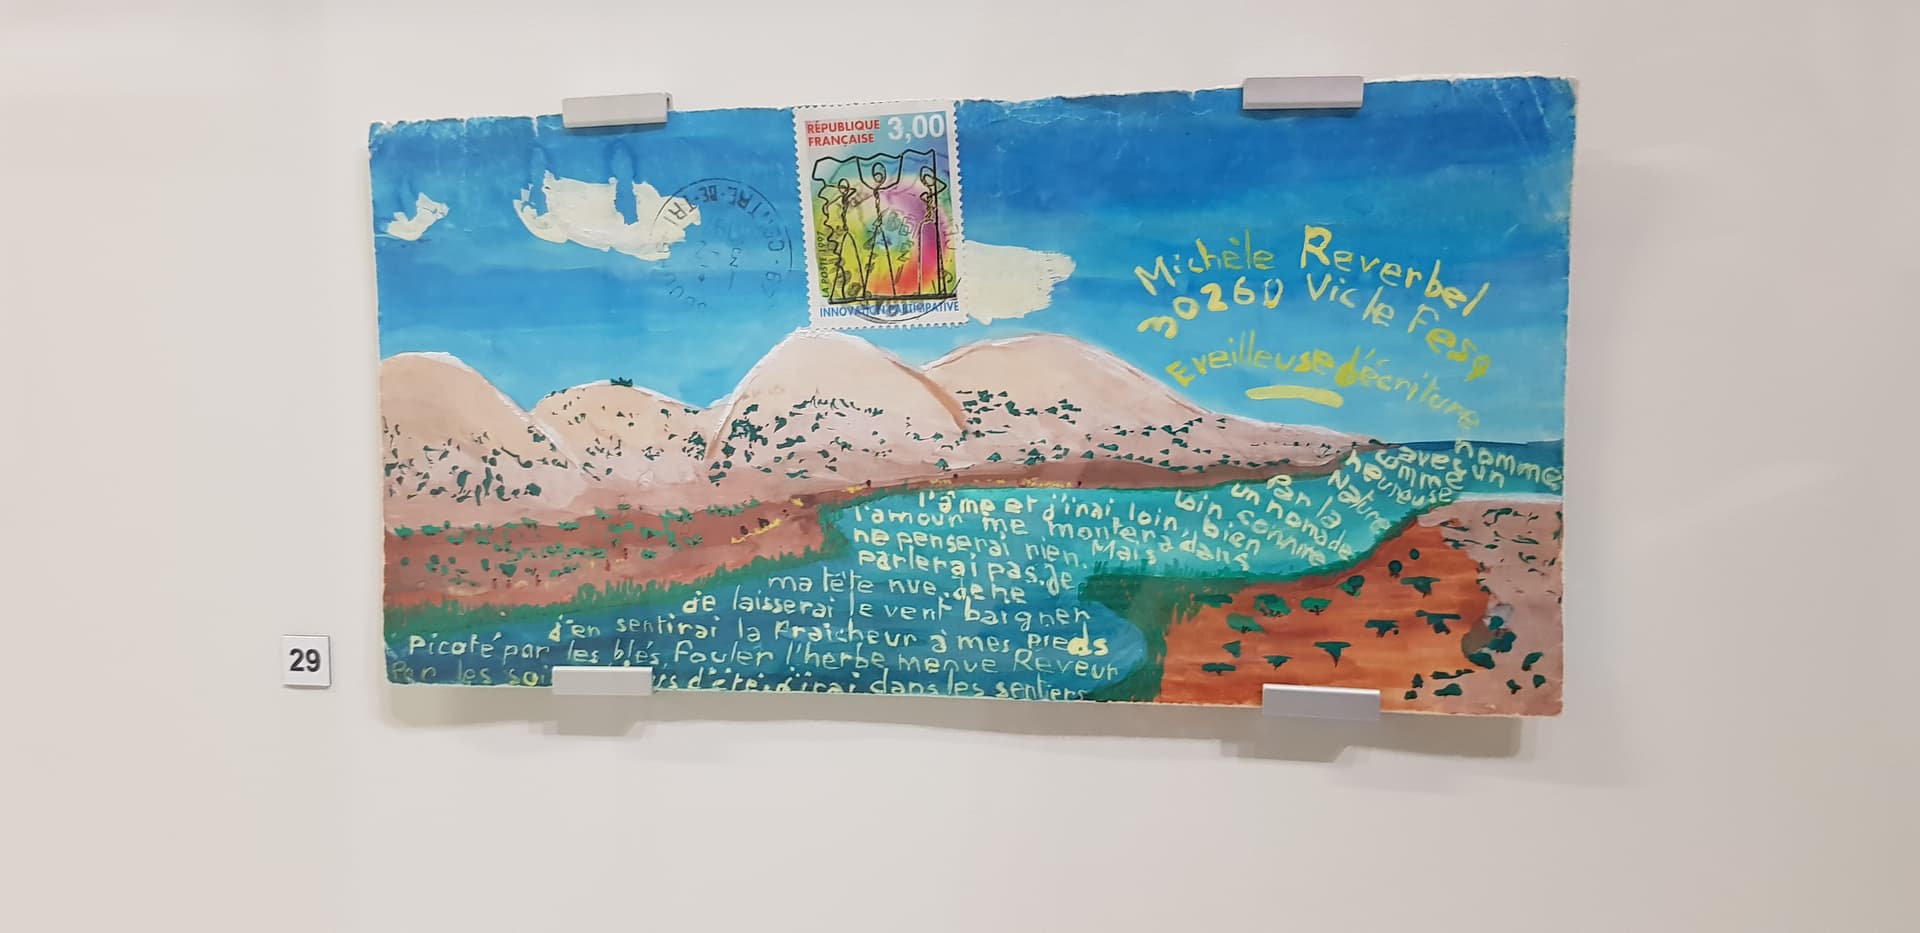 RÉPUBLIQUE
FRANÇAISE
3,00
LA POSTE 1997
INNOVATION PARTICIPATIVE
Michèle Reverbel
30260 Vic le Fesq
Eveilleuse d'écriture
Par les soi us d'été, j'irai dans les sentiers
Picoté par les blés, fouler l'herbe menue Reveur
J'en sentirai la fraicheur à mes pieds
de laisserai le vent baigner
ma tête nue. de ne
parlerai pas, je
ne penserai rien. Mais
l'amour me montera dans
l'âme et j'irai loin, bien
loin comme
un nomade
Par la
Nature
heureuse
comme
avec un
homme
29